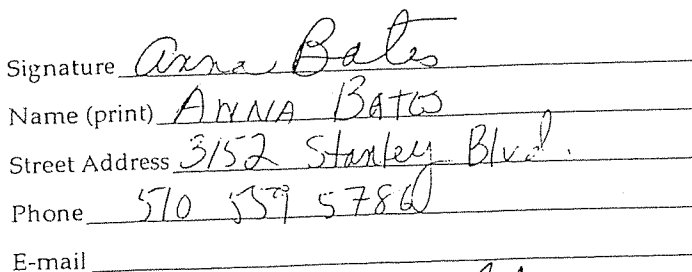 Signature Anna Bates
Name (print) ANNA BATES
Street Address 3152 Stanley Blvd.
Phone 510 559 5786
E-mail